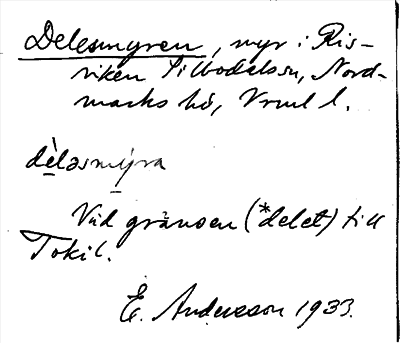 Delesmyren, myr i Ris-
viken Silbodalssn, Nord-
marks hd, Vrml l.
dèləsmýra
Vid gränsen (*delet) till
Tokil.
E. Andersson 1933.